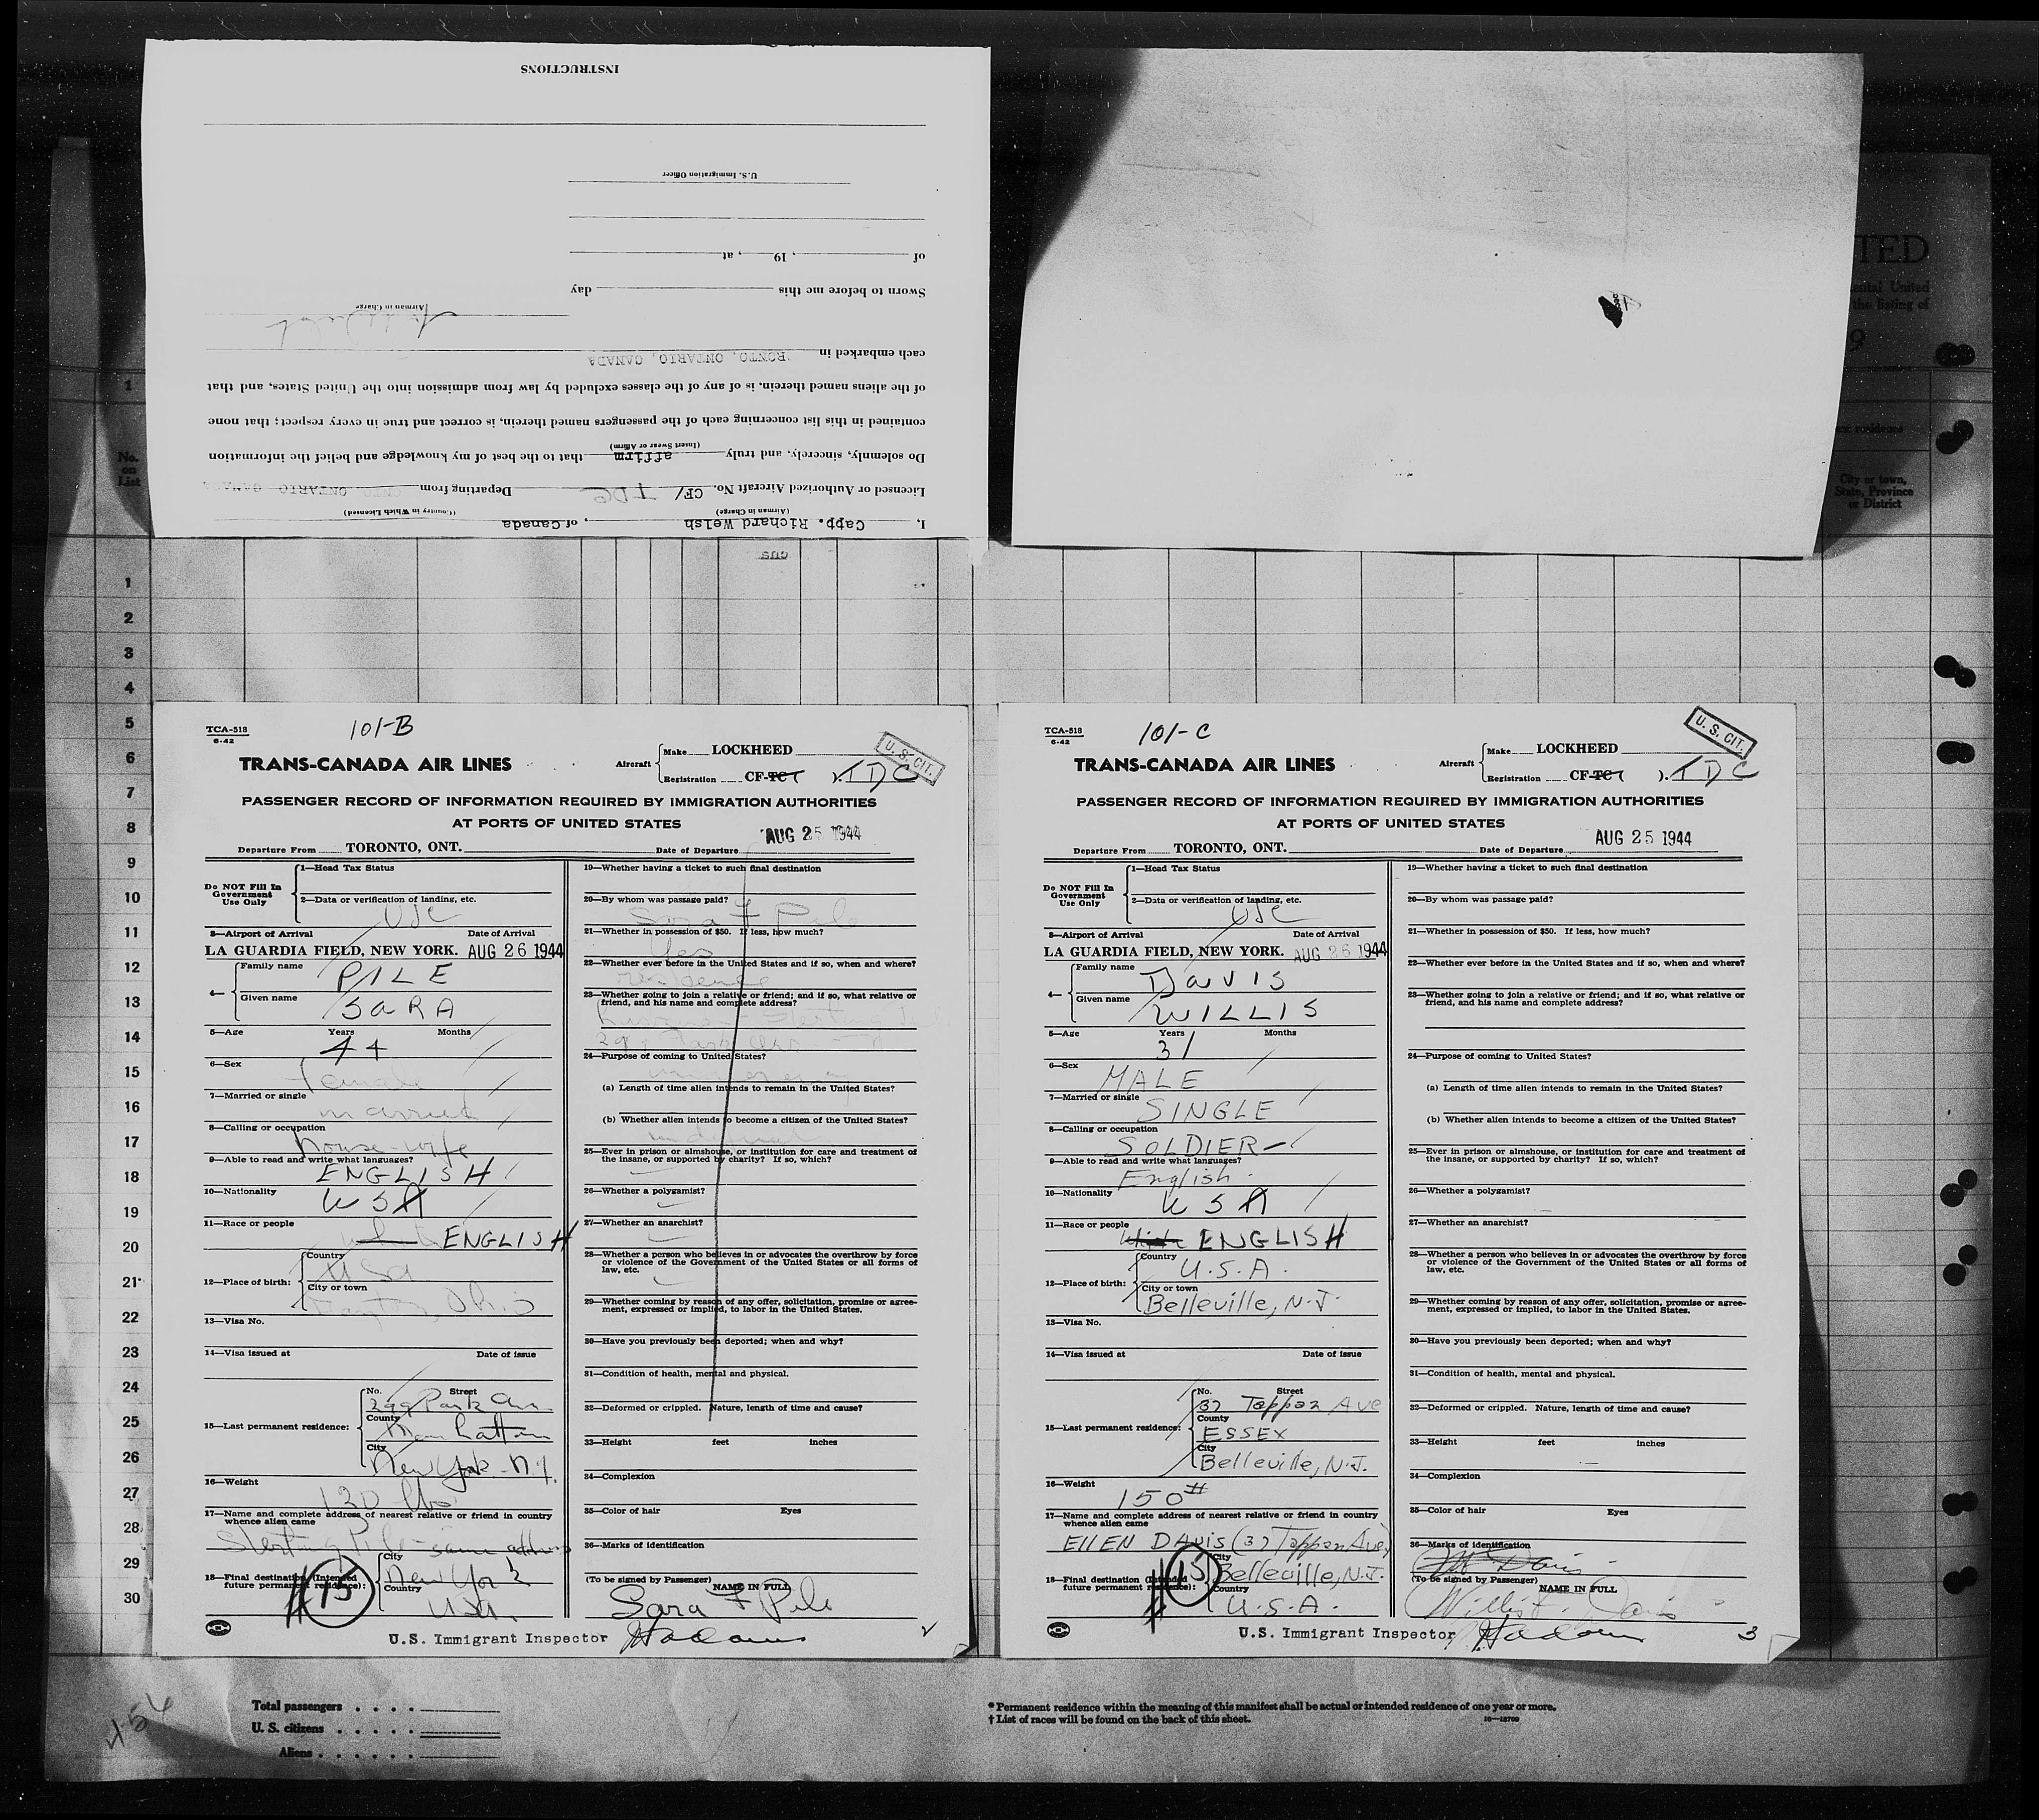 INSTRUCTIONS
U.S. Immigration Officer
of , 19 , at
Sworn to before me this day
Airman in Charge
each embarked in RONTO, ONTARIO, CANADA
of the aliens named therein, is of any of the classes excluded by law from admission into the United States, and that
contained in this list concerning each of the passengers named therein, is correct and true in every respect; that none
(Insert Swear or Affirm)
Do solemnly, sincerely, and truly affirm that to the best of my knowledge and belief the information
Licensed or Authorized Aircraft No. CF/ TDC Departing from ONTO ONTARIO CANADA
(Airman in Charge) (Country in Which Licensed)
I, Capp. Richard Welsh , of Canada
TED
ental United
the listing of
9
residence
City or town,
State, Province
or District
No.
on
List
1
1
2
3
4
5
6
7
8
9
10
11
12
13
14
15
16
17
18
19
20
21
22
23
24
25
26
27
28
29
30
TCA-518
6-42
101-B
U. S. CIT.
TRANS-CANADA AIR LINES
Aircraft
Make LOCKHEED
Registration CF-TCT TDC
PASSENGER RECORD OF INFORMATION REQUIRED BY IMMIGRATION AUTHORITIES
AT PORTS OF UNITED STATES
AUG 25 1944
Departure From TORONTO, ONT. Date of Departure
Do NOT Fill In
Government
Use Only
1—Head Tax Status
2—Data or verification of landing, etc.
USC
3—Airport of Arrival Date of Arrival
LA GUARDIA FIELD, NEW YORK. AUG 26 1944
4— Family name PILE
Given name SARA
5—Age Years Months
44
6—Sex
female
7—Married or single
married
8—Calling or occupation
housewife
9—Able to read and write what languages?
ENGLISH
10—Nationality
USA
11—Race or people
white ENGLISH
12—Place of birth:
Country
USA
City or town
Ohio
13—Visa No.
14—Visa issued at Date of issue
15—Last permanent residence:
No. Street
299 Park Ave
County
Manhattan
City
New York - N.Y.
16—Weight
130 lbs
17—Name and complete address of nearest relative or friend in country
whence alien came
Sterling Pile - same address
18—Final destination (Intended
future permanent residence):
City
New York
Country
USA.
#15
19—Whether having a ticket to such final destination
20—By whom was passage paid?
Sara F Pile
21—Whether in possession of $50. If less, how much?
Yes
22—Whether ever before in the United States and if so, when and where?
residence
23—Whether going to join a relative or friend; and if so, what relative or
friend, and his name and complete address?
husband - Sterling
299 Park Ave
24—Purpose of coming to United States?
(a) Length of time alien intends to remain in the United States?
(b) Whether alien intends to become a citizen of the United States?
25—Ever in prison or almshouse, or institution for care and treatment of
the insane, or supported by charity? If so, which?
26—Whether a polygamist?
27—Whether an anarchist?
28—Whether a person who believes in or advocates the overthrow by force
or violence of the Government of the United States or all forms of
law, etc.
29—Whether coming by reason of any offer, solicitation, promise or agree-
ment, expressed or implied, to labor in the United States.
30—Have you previously been deported; when and why?
31—Condition of health, mental and physical.
32—Deformed or crippled. Nature, length of time and cause?
33—Height feet inches
34—Complexion
35—Color of hair Eyes
36—Marks of identification
(To be signed by Passenger) NAME IN FULL
Sara F Pile
U.S. Immigrant Inspector
2
TCA-518
6-42
101-C
U. S. CIT.
TRANS-CANADA AIR LINES
Aircraft
Make LOCKHEED
Registration CF-TCT TDC
PASSENGER RECORD OF INFORMATION REQUIRED BY IMMIGRATION AUTHORITIES
AT PORTS OF UNITED STATES
AUG 25 1944
Departure From TORONTO, ONT. Date of Departure
Do NOT Fill In
Government
Use Only
1—Head Tax Status
2—Data or verification of landing, etc.
USC
3—Airport of Arrival Date of Arrival
LA GUARDIA FIELD, NEW YORK. AUG 26 1944
4— Family name DAVIS
Given name WILLIS
5—Age Years Months
31
6—Sex
MALE
7—Married or single
SINGLE
8—Calling or occupation
SOLDIER
9—Able to read and write what languages?
English
10—Nationality
USA
11—Race or people
White ENGLISH
12—Place of birth:
Country
U.S.A.
City or town
Belleville, N.J.
13—Visa No.
14—Visa issued at Date of issue
15—Last permanent residence:
No. Street
37 Tappan Ave
County
ESSEX
City
Belleville, N.J.
16—Weight
150#
17—Name and complete address of nearest relative or friend in country
whence alien came
EllEN DAVIS (37 Tappan Ave)
18—Final destination (Intended
future permanent residence):
City
Belleville, N.J.
Country
U.S.A.
#15
19—Whether having a ticket to such final destination
20—By whom was passage paid?
21—Whether in possession of $50. If less, how much?
22—Whether ever before in the United States and if so, when and where?
23—Whether going to join a relative or friend; and if so, what relative or
friend, and his name and complete address?
24—Purpose of coming to United States?
(a) Length of time alien intends to remain in the United States?
(b) Whether alien intends to become a citizen of the United States?
25—Ever in prison or almshouse, or institution for care and treatment of
the insane, or supported by charity? If so, which?
26—Whether a polygamist?
27—Whether an anarchist?
28—Whether a person who believes in or advocates the overthrow by force
or violence of the Government of the United States or all forms of
law, etc.
29—Whether coming by reason of any offer, solicitation, promise or agree-
ment, expressed or implied, to labor in the United States.
30—Have you previously been deported; when and why?
31—Condition of health, mental and physical.
32—Deformed or crippled. Nature, length of time and cause?
33—Height feet inches
34—Complexion
35—Color of hair Eyes
36—Marks of identification
(To be signed by Passenger) NAME IN FULL
Willis F. Davis
U.S. Immigrant Inspector
3
Total passengers . . . .
U. S. citizens . . . . .
Aliens . . . . . .
* Permanent residence within the meaning of this manifest shall be actual or intended residence of one year or more.
† List of races will be found on the back of this sheet.